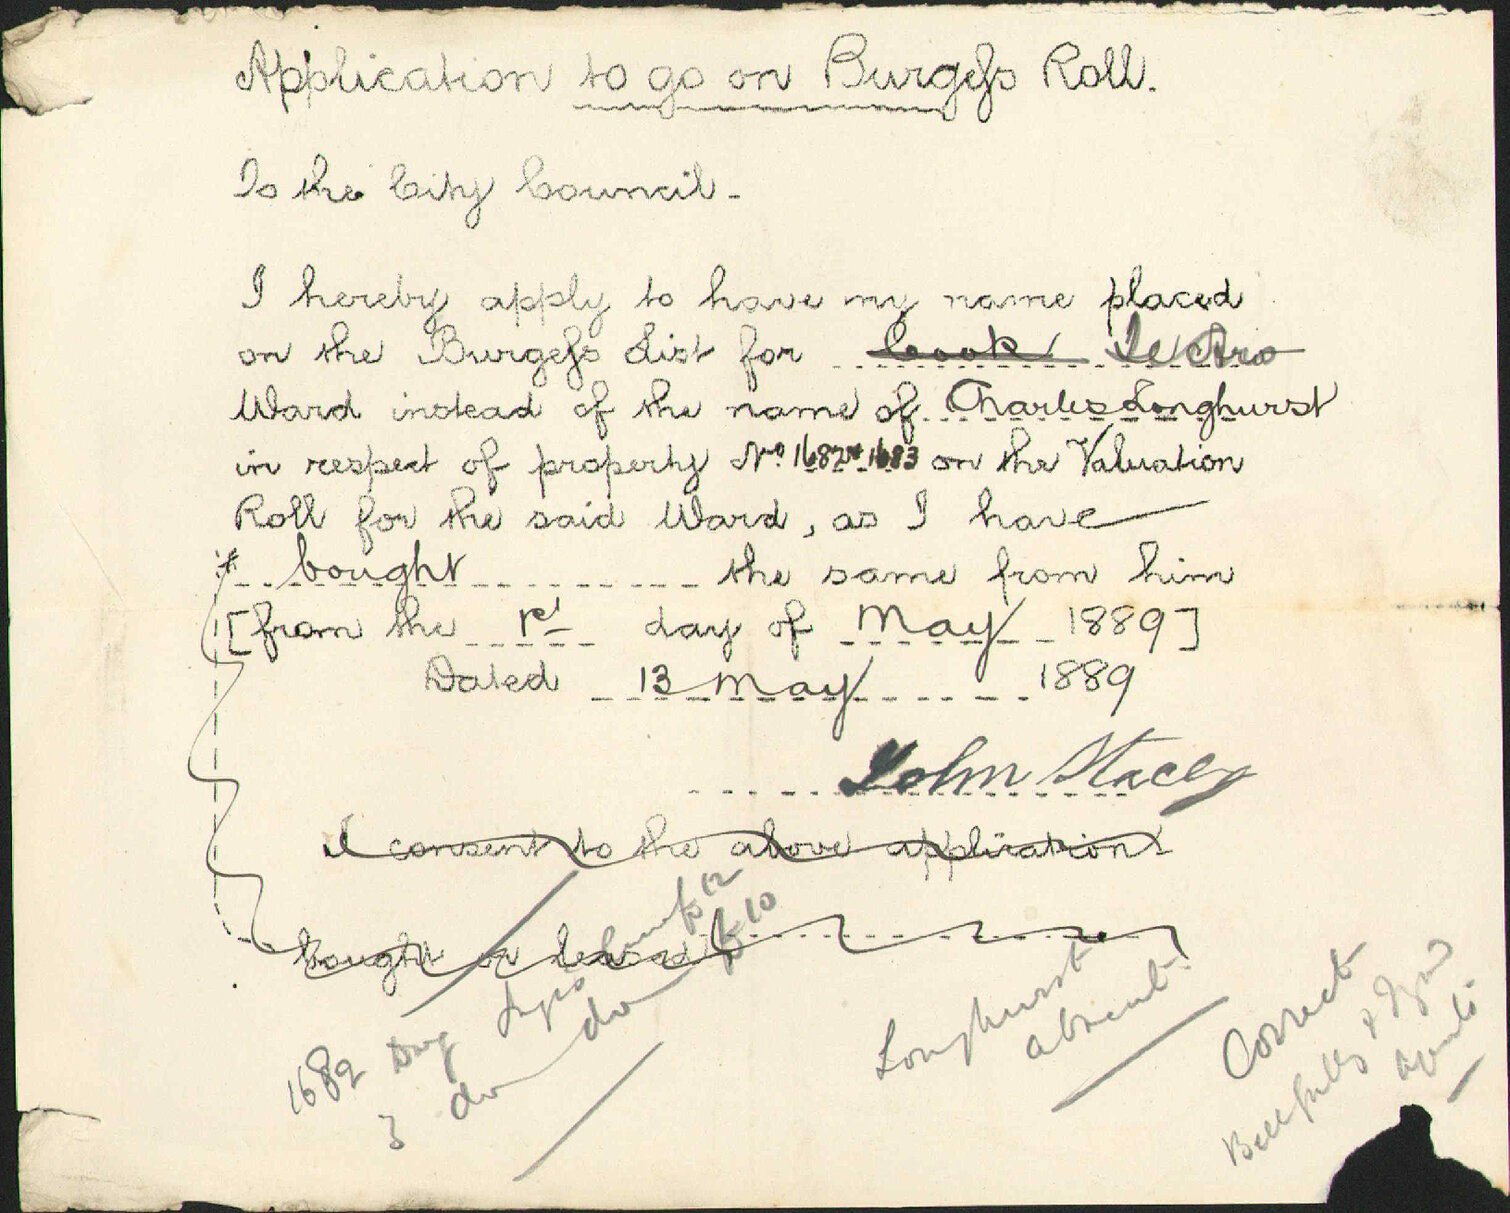 Application to go on Burgess Roll.
To the City Council.
I hereby apply to have my name placed
on the Burgess List for Cook Te Aro
Ward instead of the name of Charles Longhurst
in respect of property No. 1682 & 1683 on the Valuation
Roll for the said Ward, as I have
* bought the same from him
[from the 1st day of May 1889]
Dated 13 May 1889
John Stacey
I consent to the above application
bought or leased
1682 Dwg 12
3 do do 10
Longhurst
absent.
Correct
agents